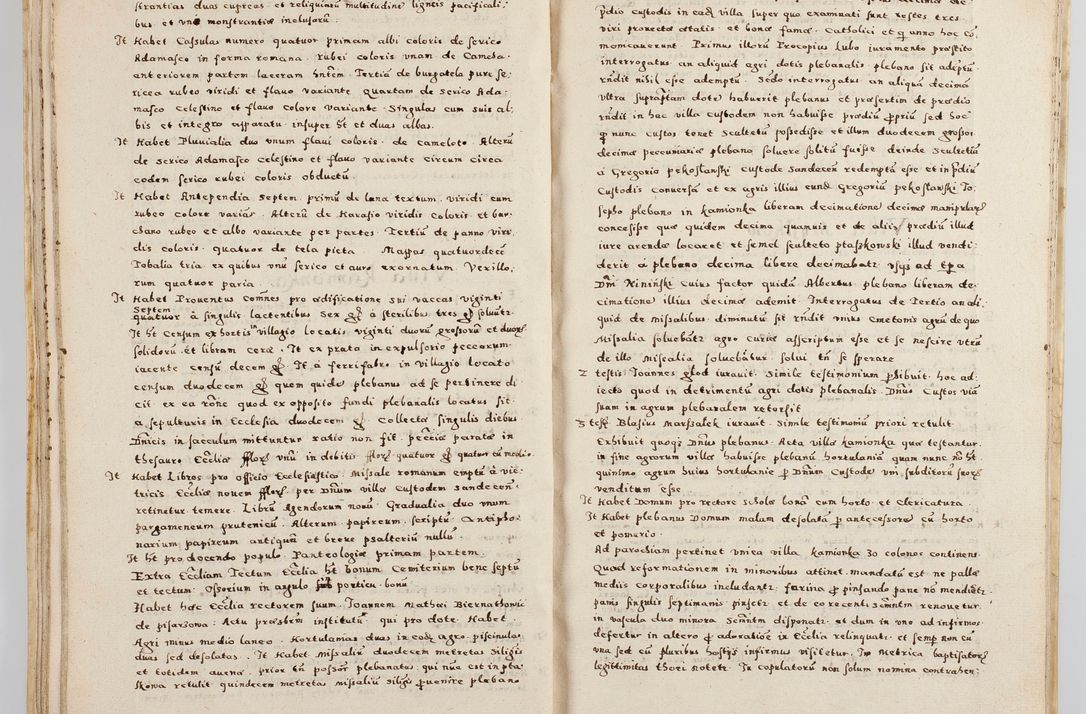 strantias duas cupreas et reliquiarū multitudine ligneis pacificali
bus et vno monstrantiæ inclusarū.
It Habet Casulas numero quatuor primam albi coloris de serico
Adamasco in forma romana. rubei coloris vnam de Cameha
anteriorem partem laceram hntem. Tertiā de burgatela pure se
ricea rubeo viridi et flauo variante quartam de serico Ada
masco celestino et flauo colore variante. Singulas cum suis al
bis et integro apparatu. insuper ht et duas albas.
It Habet Pluuialia duo vnum flaui coloris de cameloto Alterū
de serico Adamasco celestino et flauo variante circum circa
eodem serico rubei coloris obductū.
It Habet Antependia septem primū de lana textum viridi cum
rubeo colore varias. Alterū de Harasio viridis coloris et bur
chano rubeo et albo variante per partes. Tertiū de panno viri
dis coloris quatuor de tela picta Mappas quatuordecē
Tobalia tria ex quibus vnū serico et auro exornatum. Vexillo
rum quatuor paria.
It Habet Prouentus comnes pro ædificatione sui vaccas viginti
Septem
quatuor à singulis lactentibus sex à sterilibus tres soluunt
It ht Censum ex hortis in villagio locatis viginti duorū grossorū et duorū
solidorū et libram ceræ. It ex prato in expulsorio peccorum
iacente censū decem. It à ferrifabro in villagio locato
censum duodecem quem quide plebanus ad se pertinere di
cit ex ea rone quod ex opposito fundi plebanalis locatus sit.
a sepulturis in Ecclesia duodecem. Collecta singulis diebus
Dnicis in sacculum mittuntur ratio non fit. peccia parata in
thesauro Ecclæ vnū in debitis quatuor quatuor tū medio
It Habet Libros pro officio Ecclesiastico. Missale romanum emptū à vic
tricis Ecclæ nouem per Dnum villæ Custodem sandecen
retinetur temere. Librū Agendorum nouū. Gradualia duo vnum
pargameneum prutenicū. Alterum papireum scriptū Antipho
narium papireum antiquū et breue psalteriū nullū.
It ht pro docendo populo Panteologiæ primam partem.
Extra Eccliam Tectum Ecclia ht bonum Cemiterium bene septū
et tectum. Ossorium in angulo porticu bonū
Habet hæc Ecclia rectorem suum Joannem Mathæi Biernathowic
de pisarzowa. Actu præsbrm institutū qui pro dote Habet
Agri minus medio laneo. Hortulanias duas in eodē agro. piscinulas
duas sed desolatas. It Habet missaliū duodecem metretas siliginis
et totidem auenæ. prior tn possor plebanatus qui nūc est in pta
skowa retulit quindecem metretas missaliū siligis puenire plebano

pdio custodis in eadē villa super quo examinati sunt testes tres
viri prouectæ ætatis et bonæ famæ Catholici et q anno hoc cō
municauerunt. Primus illorū Procopius Lubo iuramento præstito
interrogatus an aliquid agri dotis plebanalis plebano sit ademptū
rndit nihil esse ademptū. Sedo interrogatus an aliquā decimā
vltra supraptam dote habuerit plebanus et præsertim de prædio
rndit in hac villa custodem non habuisse prædiū ppriū sed hoc
q nunc custos tenet Scultetū possedisse et illum duodecem grossos
decimæ pecuniariæ plebano soluere solitū fuisse. deinde Scultetiā
à Gregorio pekoslanski custode Sandecen redemptā esse et in pdiū
Custodis conuersā et ex agris illius eundē Gregoriū pekoslanski Jo
sepho plebano in kamionka liberam decimatione decimæ manipularis
concesisse quæ quidem decima quamuis et de alijs prædiū illud
iure arendæ locaret et semel sculteto ptaszkowski illud vendi
derit à plebano decima libere decimabatur vsq ad tpra
Dni Kiniński cuius factor quidā Albertus plebano liberam de
cimatione illius decimæ ademit. Interrogatus de Tertio an ali
quid de missalibus diminutū sit rndit vnius cmetonis agrū de quo
missalia soluebātur agro curiæ asscriptum esse et se nescire vtrū
de illo missalia soluebātur solui tn se sperare
2 testis Joannes glod iurauit. simile testimonium phibuit. hoc ad
iecto quod in detrimentū agri dotis plebanalis Dnus Custos viā
suam in agrum plebanalem retorsit
3 tests Blasius Marszalek iurauit. Simile testimoniū priori retulit.
Exhibuit quoq Dnus plebanus Acta villæ kamionka quæ testantur
in fine agrorum villæ habuisse plebanū hortulaniā quam nunc nō ht
quinimo agrum huius hortulaniæ p Dnum Custode vni subditorū suorū
venditum esse.
It Habet Domum pro rectore scholæ bonā cum horto et Clericatura.
It Habet plebanus Domum malam desolatā p antecessores cū horto
et pomario.
Ad parochiam pertinet vnica villa kamionka 30 colonos continens.
Quod reformationem in minoribus attinet mandatū est ne pallæ
medijs corporalibus includantur farina p pinsando pane nō mendicetur
panis singulis septimanis pinsetur et de eo recenti semntm renouetur
in vasculo duo minora Semntm disponatur et dum in vno ad infirmos
defertur in altero p adoratioē in Ecclia relinquatur et semp non cū
vna sed cū pluribus hostijs infirmus visitetur. In Metrica baptisatorum
legittimitas thori notetur. In copulatorū non solum nomina contrahen